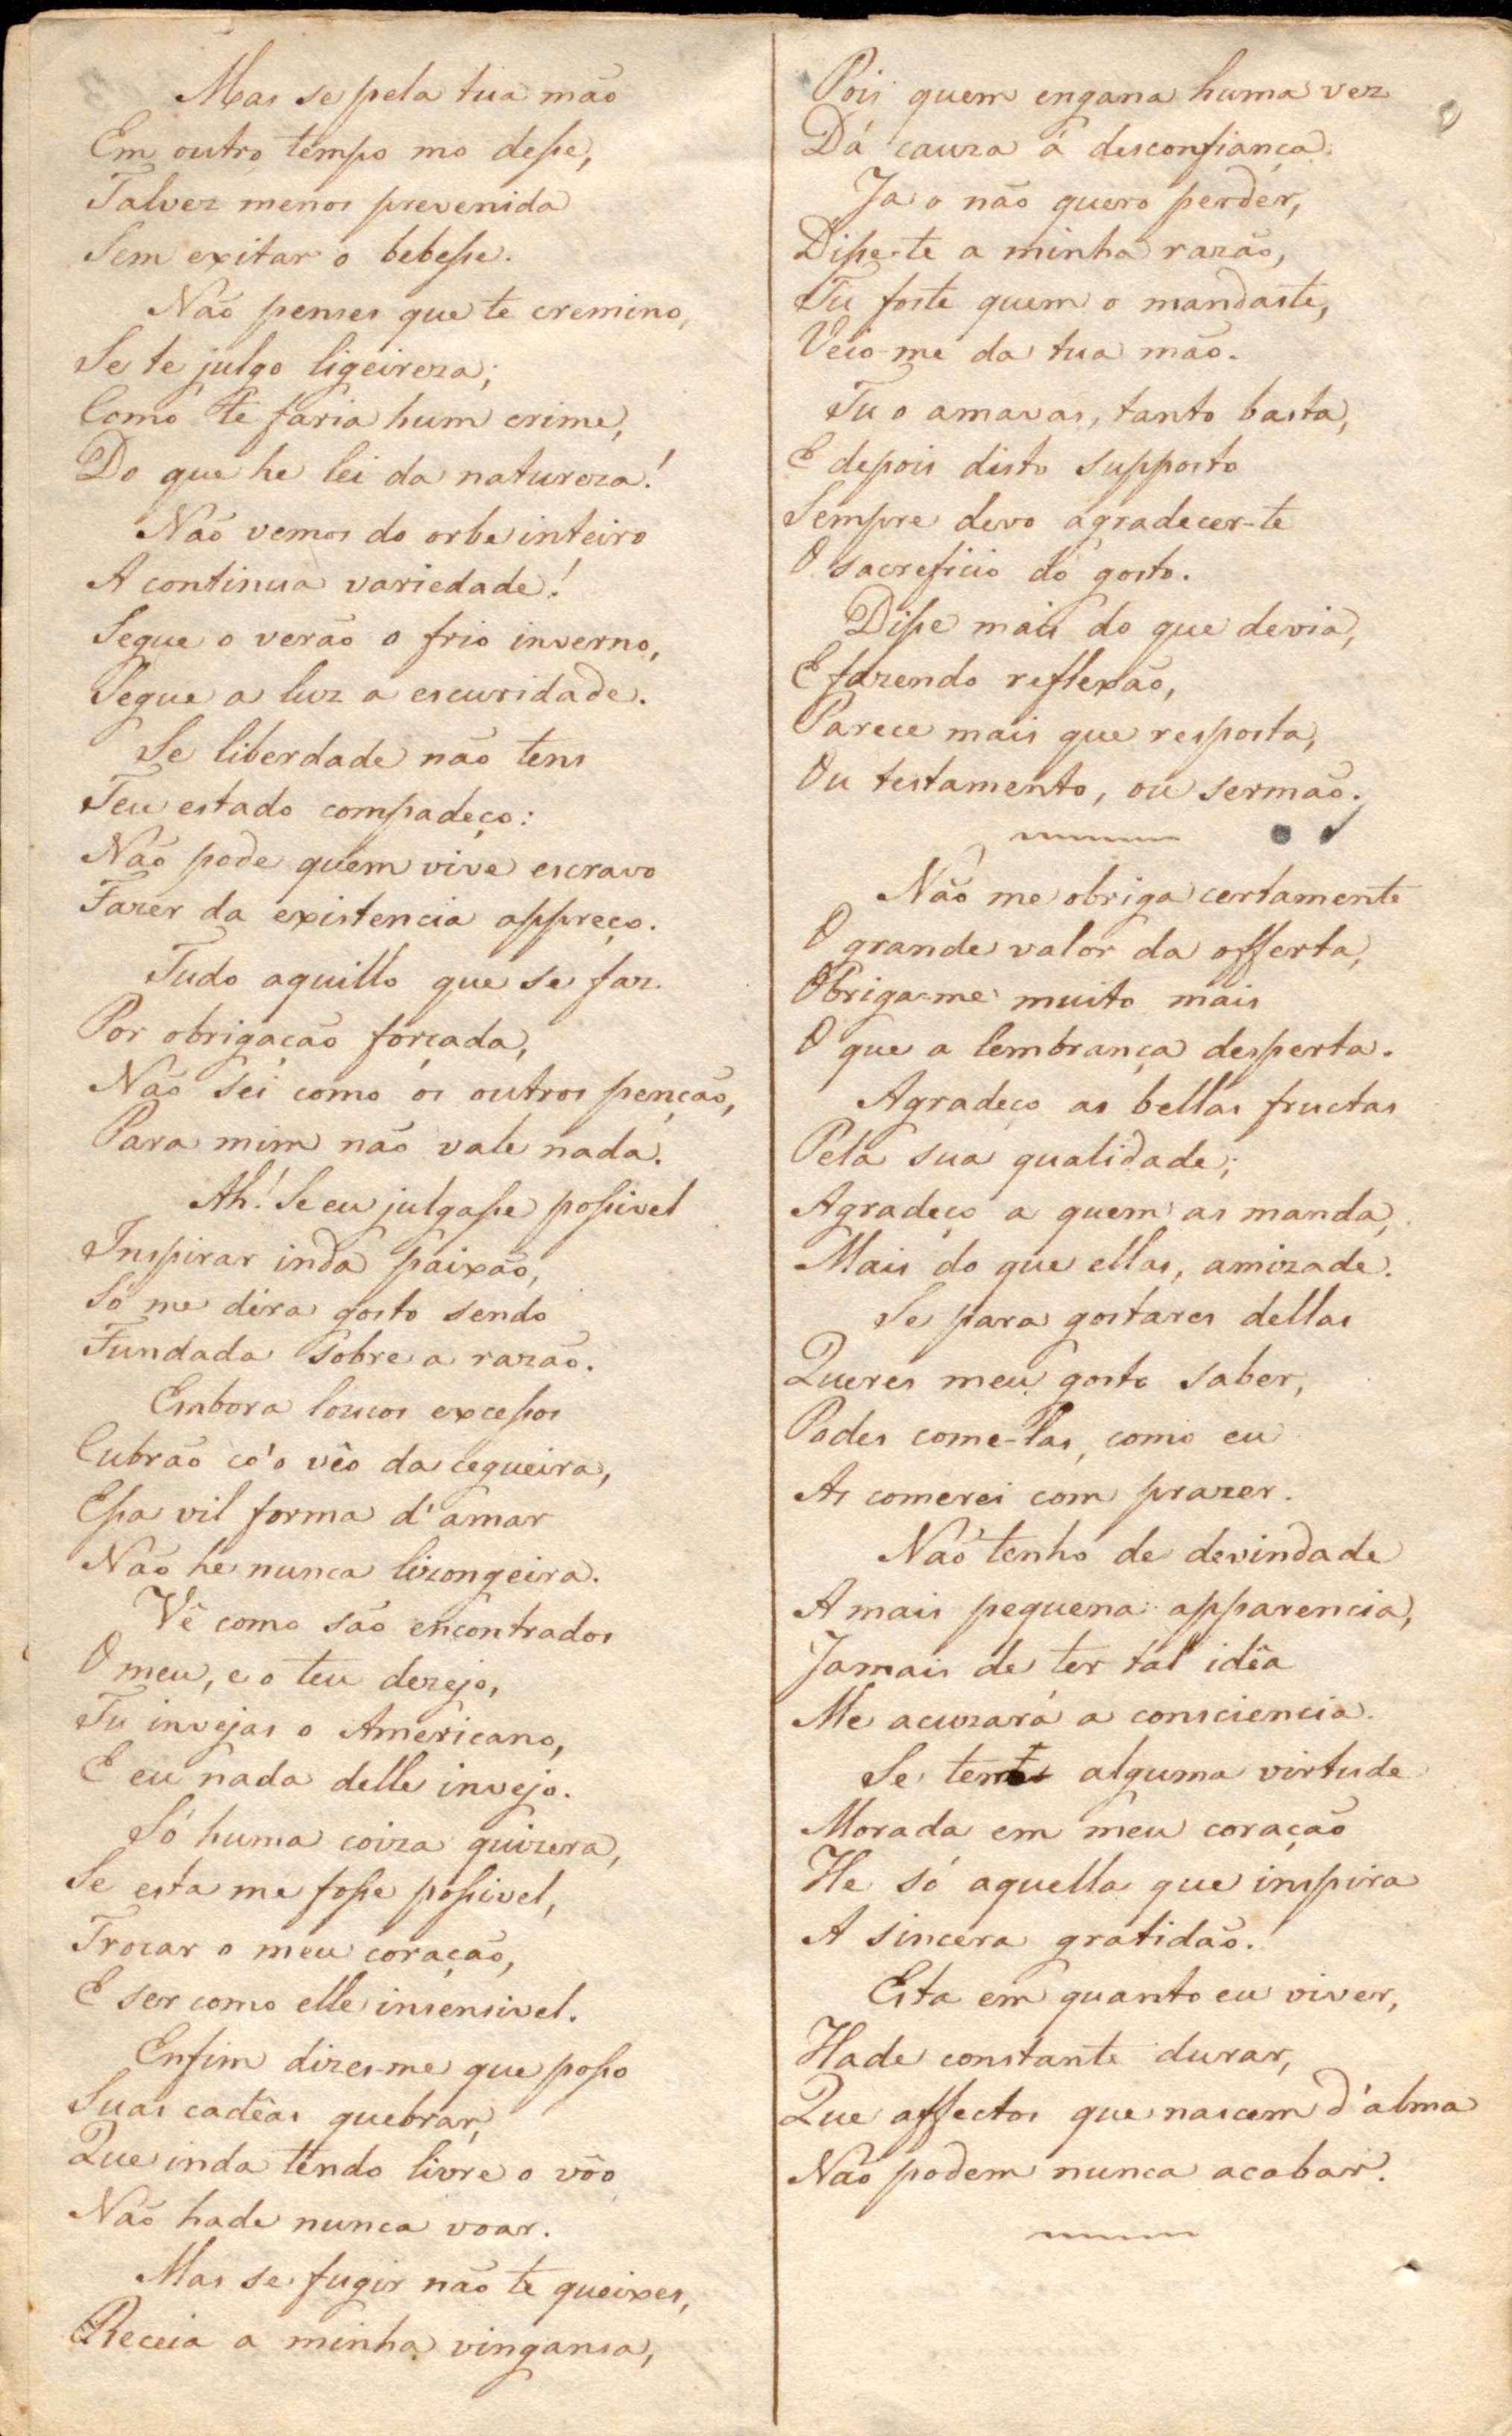 Mas se pela tua mão
Em outro tempo mo desse,
Talvez menos prevenida
Sem exitar o bebesse.
Não penses que te cremino,
Se te julgo ligeireza;
Como te faria hum crime,
Do que he lei da natureza!
Não vemos do orbe inteiro
A continua variedade!
Segue o verão o frio inverno,
Segue a luz a escuridade.
Se liberdade não tens
Teu estado compadeço:
Não pode quem vive escravo
Fazer da existencia appreço.
Tudo aquillo que se faz
Por obrigação forçada,
Não sei como os outros penção,
Para mim não vale nada.
Ah! Se eu julgasse possivel
Inspirar inda paixão,
Só me déra gosto sendo
Fundada sobre a razão.
Embora loucos excessos
Cubrão có'o vêo da cegueira,
Essa vil forma d'amar
Não he nunca lizongeira.
Vê como são encontrados
O meu, e o teu dezejo,
Tu invejas o Americano,
E eu nada delle invejo.
Só huma coiza quizera,
Se esta me fosse possivel,
Trocar o meu coração,
E ser como elle insensivel.
Enfim dizes-me que posso
Suas cadêas quebrar,
Que inda tendo livre o vôo
Não hade nunca voar.
Mas se fugir não te queixes,
Receia a minha vingansa,
Pois quem engana huma vez
Dá cauza á desconfiança.
Ja o não quero perder,
Disse-te a minha razão,
Tu foste quem o mandaste,
Veio-me da tua mão.
Tu o amavas, tanto basta,
E depois disto supposto
Sempre devo agradecer-te
O sacreficio do gosto.
Disse mais do que devia,
E fazendo reflexão,
Parece mais que resposta,
Ou testamento, ou sermão.
Não me obriga certamente
O grande valor da offerta,
Obriga-me muito mais
O que a lembrança desperta.
Agradeço as bellas fructas
Pela sua qualidade;
Agradeço a quem as manda,
Mais do que ellas, amizade.
Se para gostares dellas
Queres meu gosto saber,
Podes come-las, como eu
As comerei com prazer.
Não tenho de devindade
A mais pequena apparencia,
Jamais de ter tal idêa
Me acuzará a consciencia.
Se tem alguma virtude
Morada em meu coração
He só aquella que inspira
A sincera gratidão.
Esta em quanto eu viver,
Hade constante durar,
Que affectos que nascem d'alma
Não podem nunca acabar.